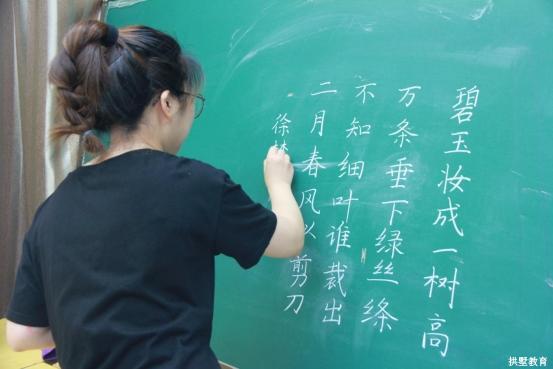 碧玉妆成一树高
万条垂下绿丝绦
不知细叶谁裁出
二月春风似剪刀
徐
拱墅教育